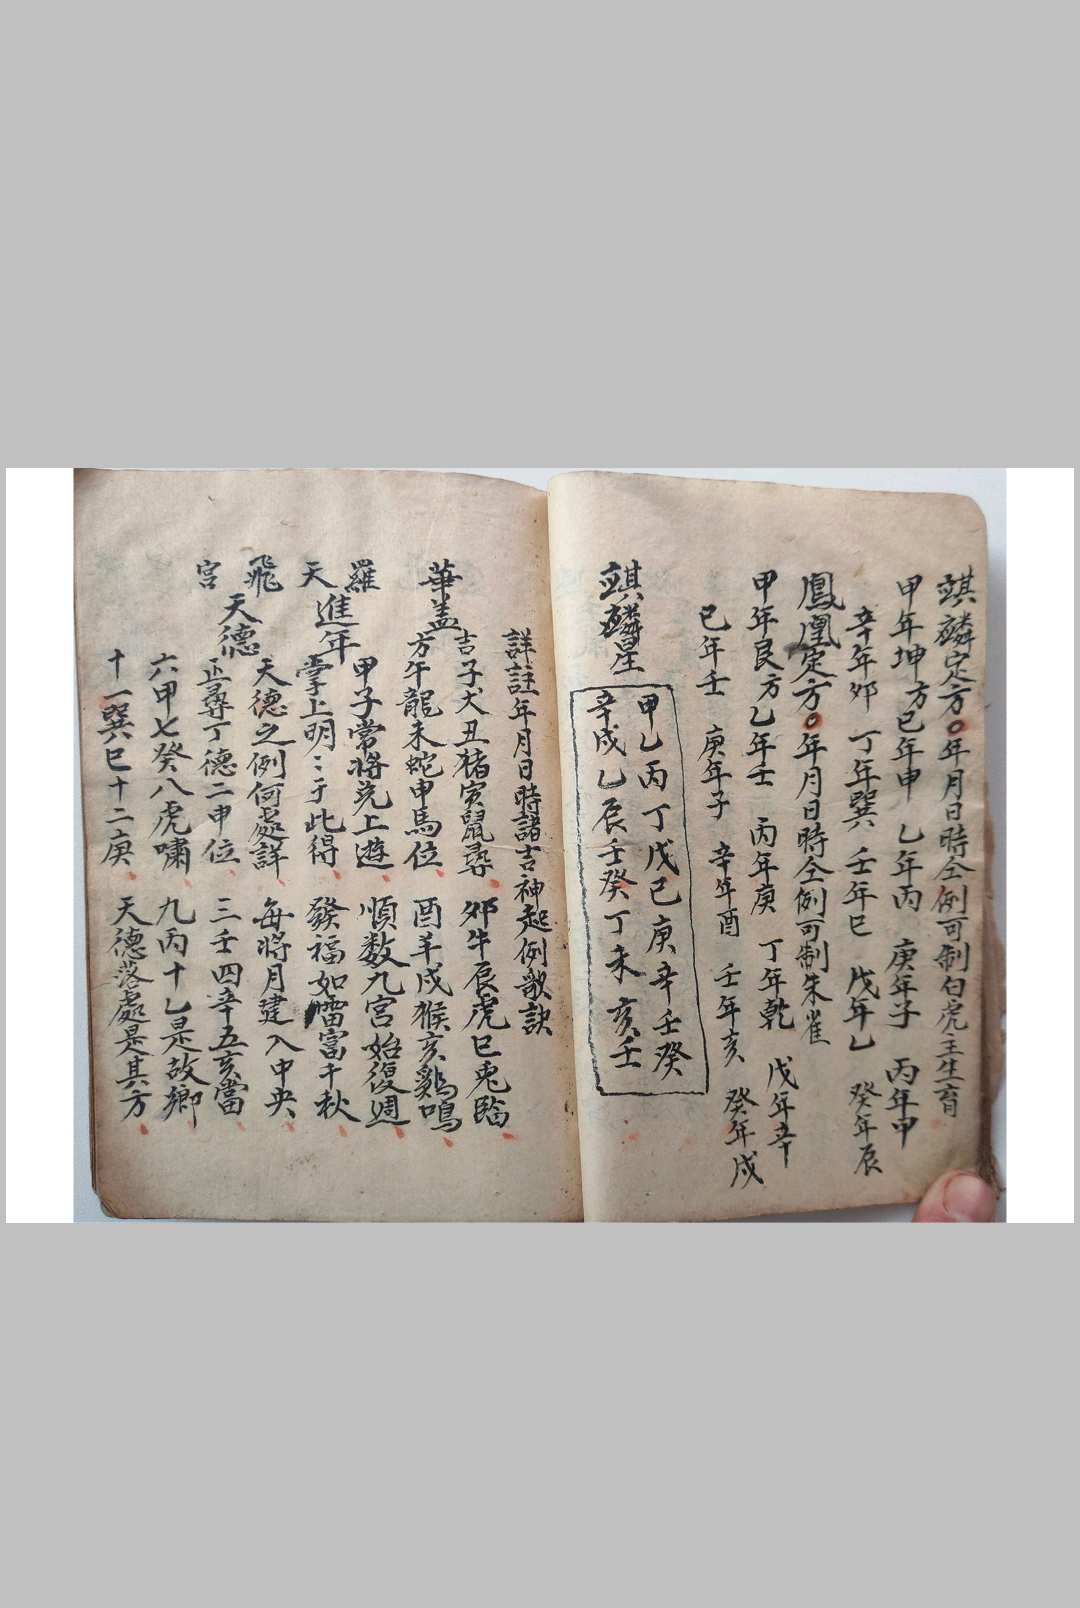 麒麟定方○年月日時仝例可制白虎主生育
甲年坤方己年申　乙年丙　庚年子　丙年甲
辛年卯　丁年巽　壬年巳　戊年乙　癸年辰
鳳凰定方○年月日時仝例可制朱雀
甲年艮方乙年壬　丙年庚　丁年乾　戊年辛
己年壬　庚年子　辛年酉　壬年亥　癸年戌
麒麟星
甲乙丙丁戊己庚辛壬癸
辛戌乙辰壬癸丁未亥壬
詳註年月日時諸吉神起例歌訣
華盖
吉子犬丑猪寅鼠尋　卯牛辰虎巳兎臨
方午龍未蛇申馬位　酉羊戌猴亥鷄鳴
羅天進年
甲子常將兌上遊　順数九宮始復週
掌上明：于此得　發福如雷富千秋
飛宮天德
天德之例何處詳　每將月建入中央
正尋丁德二申位　三壬四辛五亥當
六甲七癸八虎嘯　九丙十乙是故鄉
十一巽巳十二庚　天德落處是其方